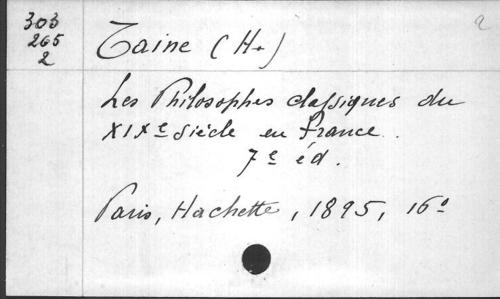 303
265
2
Taine (H.)
2
Les Philosophes classiques du
XIXe siècle en France.
7e éd.
Paris, Hachette, 1895, 16º